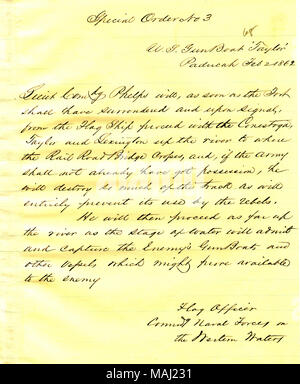 Special Order No 3
68
U.S. Gun Boat Taylor
Paducah Feb 2 1862
Lieut Comdg Phelps will, as soon as the Fort
shall have surrendered and upon signal,
from the Flag Ship proceed with the Conestoga,
Taylor and Lexington up the river to where
the Rail Road Bridge Crosses, and, if the army
shall not already have got possession, he
will destroy so much of the track as will
entirely prevent its use by the rebels.
He will then proceed as far up
the river as the stage of water will admit
and capture the Enemy's Gun Boats and
other vessels which might prove available
to the enemy
Flag Officer
Commdg Naval Forces on
the Western Waters
alamy
Image ID: MAJ231
www.alamy.com